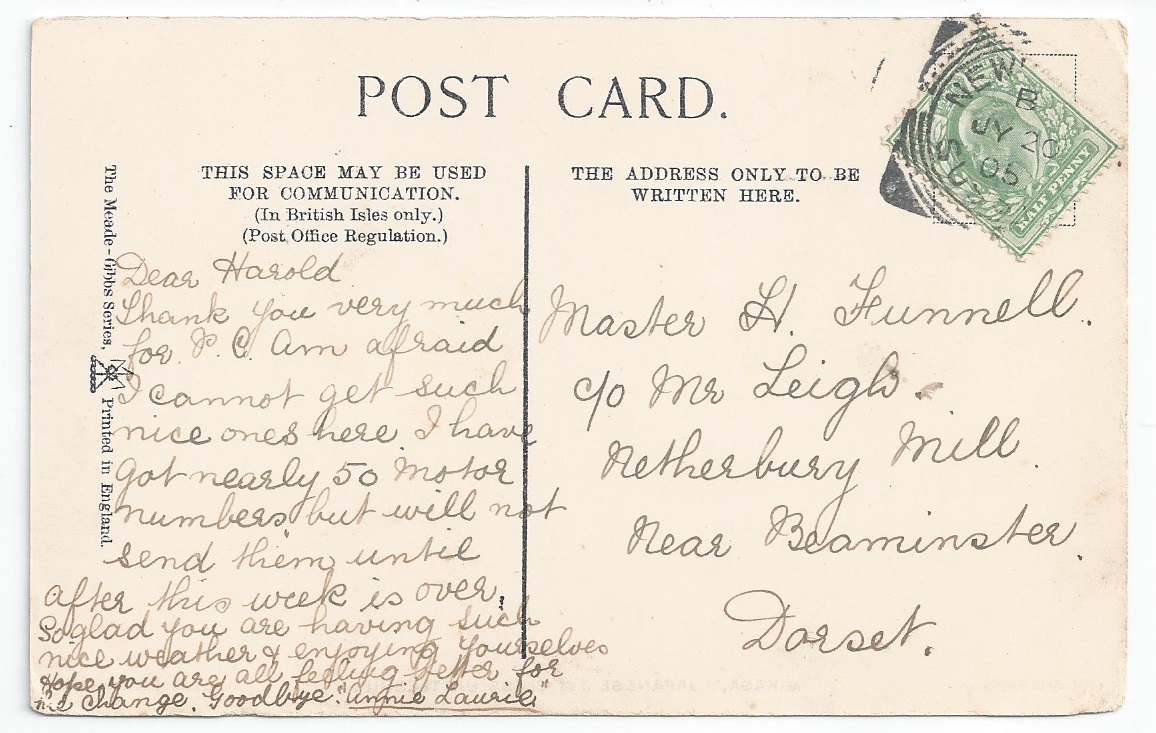 POST CARD.
THIS SPACE MAY BE USED
FOR COMMUNICATION.
(In British Isles only.)
(Post Office Regulation.)
THE ADDRESS ONLY TO BE
WRITTEN HERE.
The Meade-Gibbs Series.
Printed in England.
NEW
B
JY 20
05
HALFPENNY
Dear Harold
Thank you very much
for P.C. Am afraid
I cannot get such
nice ones here I have
got nearly 50 motor
numbers but will not
send them until
after this week is over.
So glad you are having such
nice weather & enjoying yourselves
Hope you are all feeling better for
the change. Goodbye "Annie Laurie"
Master H. Funnell.
c/o Mr Leigh.
Netherbury Mill.
Near Beaminster.
Dorset.